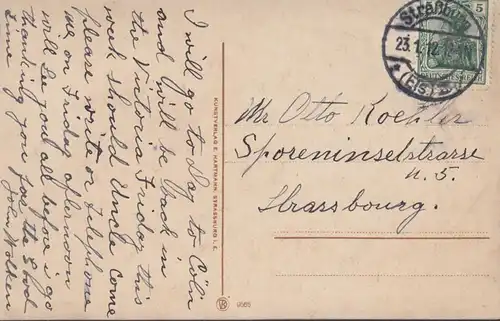 I will go to Day to Cöln
and will be back in
the Victoria Friday this
week should Uncle come
please write or telephone
me on Friday afternoon
will see you all before i go
thanking you for the good
time John Wolken
KUNSTVERLAG E. HARTMANN, STRASSBURG I. E.
9565
Straßburg
23.1.12
(Els)
5
Mr Otto Koehler
Sporeninselstrasse
N. 5.
Strassbourg.